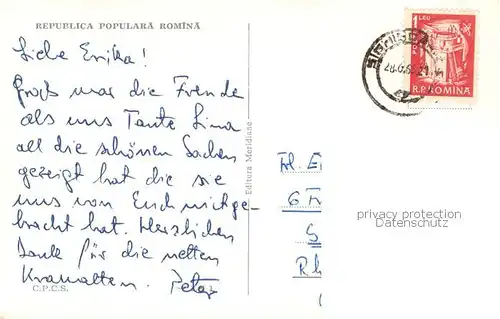 REPUBLICA POPULARĂ ROMÎNĂ
Liebe Erika!
Groß war die Freude
als uns Tante Lina
all die schönen Sachen
gezeigt hat die sie
uns von Euch mitge-
bracht hat. Herzlichen
Dank für die netten
Krawatten. Peter
C.P.C.S.
Editura Meridiane
1 LEU
R.P. ROMINA
Fl. E
6 F
S
Rh
privacy protection
Datenschutz